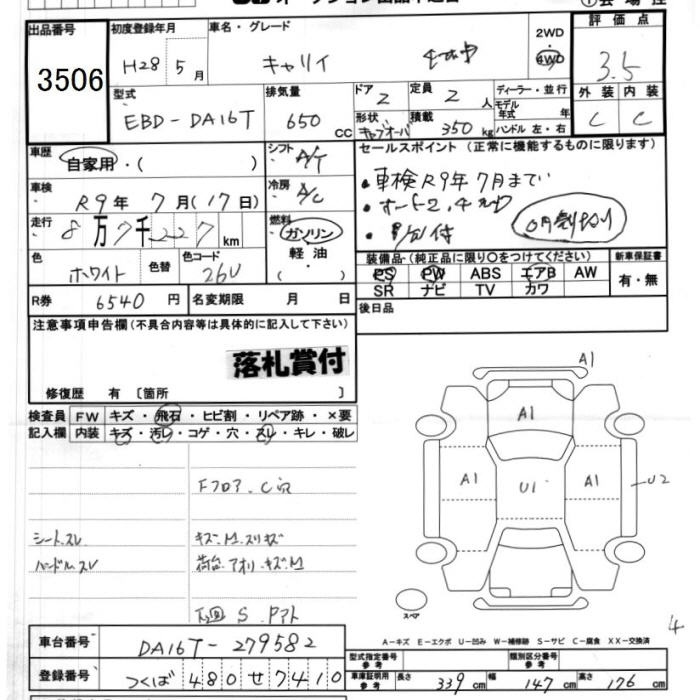 出品番号
3506
初度登録年月
H28年 5月
車名・グレード
キャリイ
2WD
4WD
評価点
3.5
型式
EBD-DA16T
排気量
650 CC
ドア 2
定員 2 人
形状 キャブオーバ
積載 350 kg
ディーラー・並行
モデル年式 年
ハンドル 左・右
外装 内装
C C
車歴
自家用・( )
シフト A/T
車検
R9年 7月(17日)
冷房 A/C
走行
8万7千227km
燃料
ガソリン
軽油
( )
セールスポイント (正常に機能するものに限ります)
・車検R9年7月まで
・オート2,4切
・ 付
色 ホワイト
色替
色コード 26U
R券 6540円
名変期限 月 日
装備品 (純正品に限り○をつけてください)
PS PW ABS エアB AW
SR ナビ TV カワ
新車保証書
有・無
後日品
注意事項申告欄(不具合内容等は具体的に記入して下さい)
落札賞付
修復歴 有〔箇所 〕
検査員記入欄
FW キズ・飛石・ヒビ割・リペア跡・×要
内装 キズ・汚レ・コゲ・穴・スレ・キレ・破レ
Fフロア. C
シート.スレ
キズ.M.スリキズ
ハンドルスレ
荷台.アオリ.キズM
下回 S. Pアト
A1
A1
A1 U1 A1 U2
スペア
4
A-キズ E-エクボ U-凹み W-補修跡 S-サビ C-腐食 XX-交換済
車台番号 DA16T-279582
登録番号 つくば 480 せ 7410
型式指定番号 参考
類別区分番号 参考
車庫証明用 参考
長さ 339 cm
幅 147 cm
高さ 176 cm